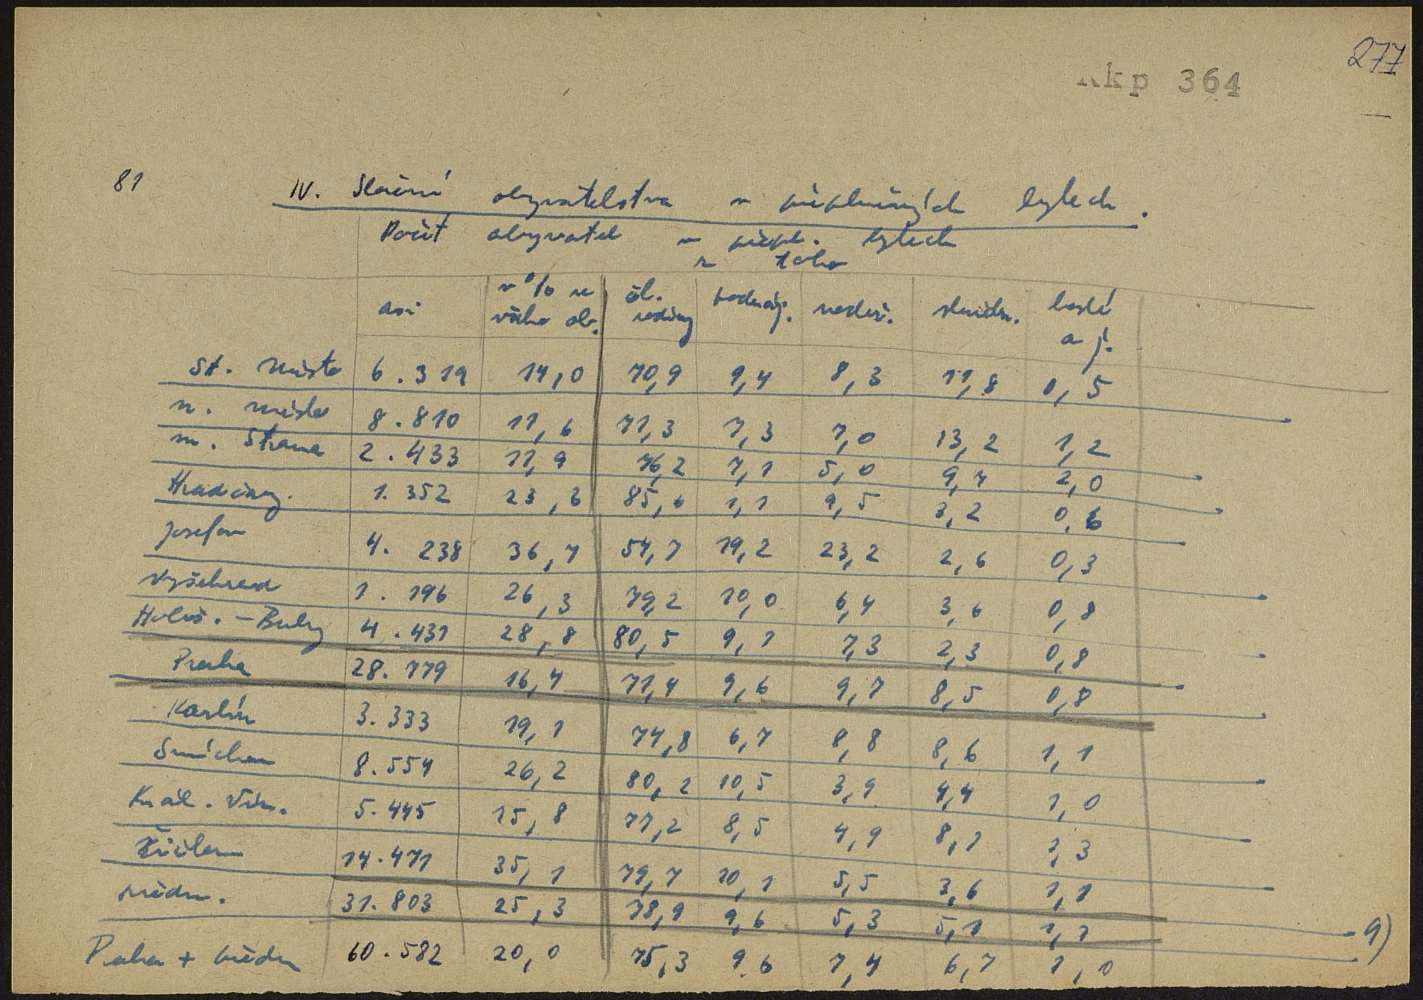 277
Rkp 364
81 IV. Složení obyvatelstva v přeplněných bytech.
Počet obyvatel v přepl. bytech
z toho
asi v % ve čl. rodiny podnáj. noclež. služebn. hosté a j.
St. Město 6.319 14,0 70,9 9,4 8,3 11,8 0,5
N. město 8.810 11,6 71,3 7,3 7,0 13,2 1,2
M. Strana 2.433 11,9 76,2 7,1 5,0 9,7 2,0
Hradčany. 1.352 23,6 85,6 1,1 9,5 3,2 0,6
Josefov 4.238 36,7 54,7 19,2 23,2 2,6 0,3
Vyšehrad 1.196 26,3 79,2 10,0 6,4 3,6 0,8
Holeš.-Bubny 4.431 28,8 80,5 9,1 7,3 2,3 0,8
Praha 28.779 16,4 71,4 9,6 9,7 8,5 0,8
Karlín 3.333 19,1 74,8 6,7 8,8 8,6 1,1
Smíchov 8.554 26,2 80,2 10,5 3,9 4,4 1,0
Král. Vin. 5.445 15,8 77,2 8,5 4,9 8,1 1,3
Žižkov 14.471 35,1 79,7 10,1 5,5 3,6 1,1
předm. 31.803 25,3 78,9 9,6 5,3 5,1 1,1
9)
Praha + předm 60.582 20,0 75,3 9.6 7,4 6,7 1,0